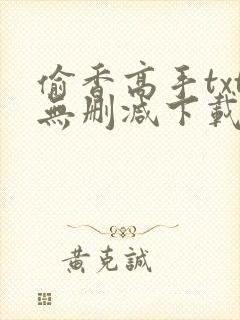 偷香高手txt
無刪減下載
黃克誠